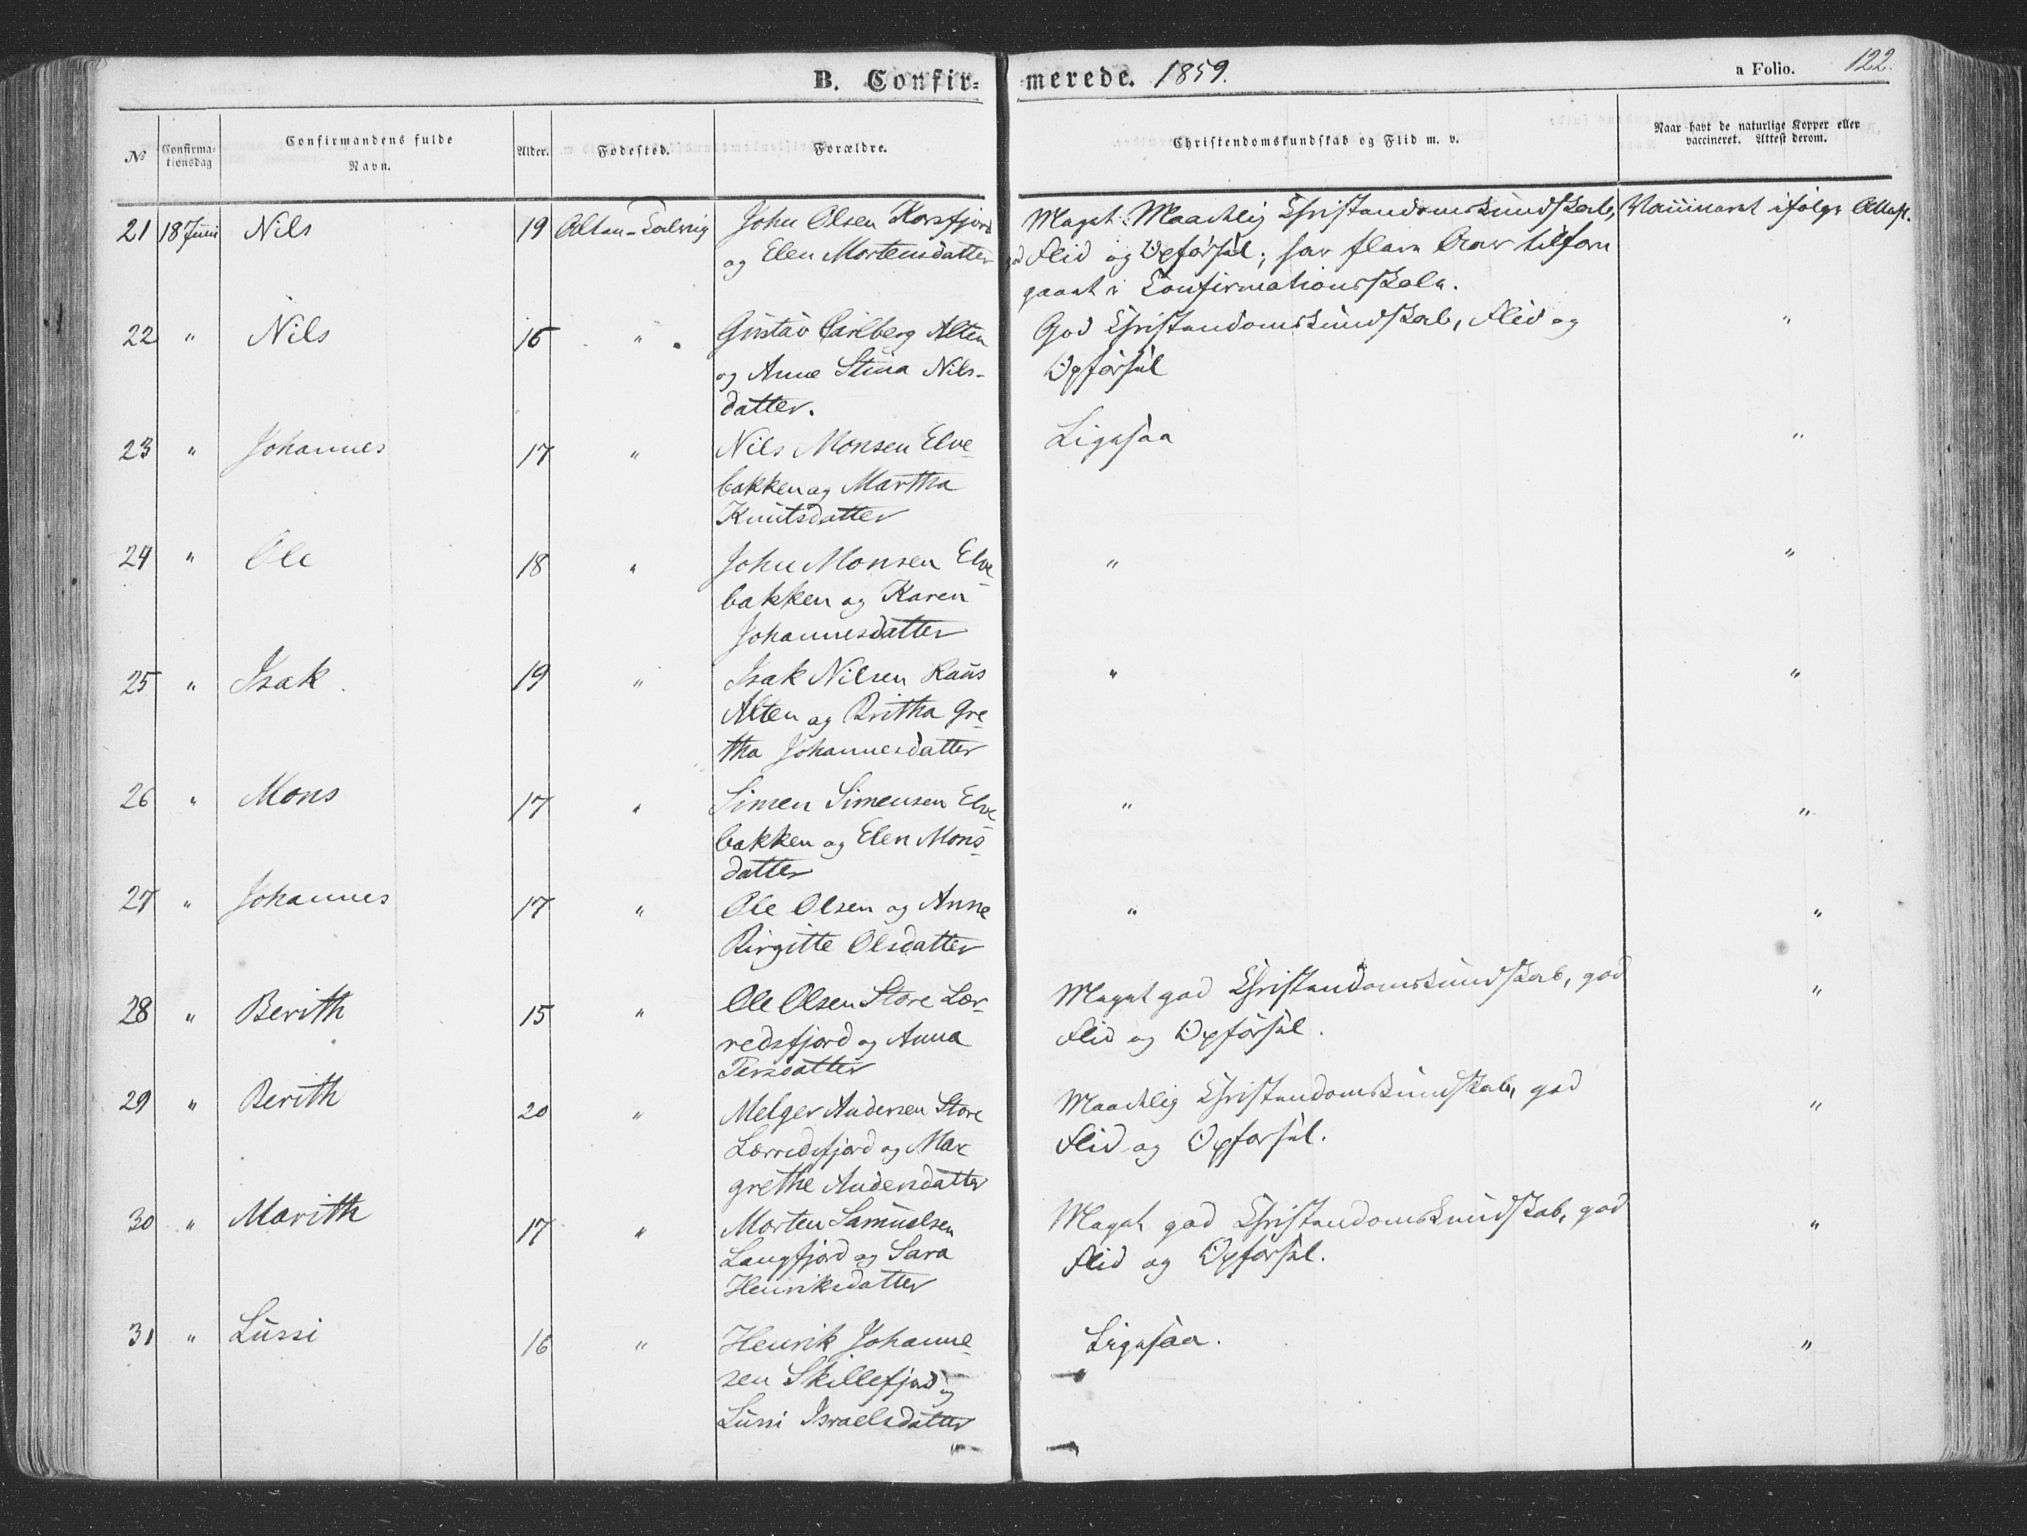 B. Confirmerede. 1859. a Folio. 122.
№ Confirmationsdag Confirmandens fulde Navn. Alder. Fødested. Forældre. Christendomskundskab og Flid m. v. Naar havt de naturlige Kopper eller vaccineret. Attest derom.
21 18 Juni Nils 19 Alten-Talvig John Olsen Korsfjord Meget Maadelig Christendomskundskab, Vaccineret ifølge Attest.
og Elen Mortensdatter god Flid og Opførsel; har flere Aar tilforn
gaaet i Confirmationsskole.
22 " Nils 16 " Gustav Carlberg Alten God Christendomskundskab, Flid og "
og Anne Stina Nils- Opførsel
datter.
23 " Johannes 17 " Nils Monsen Elve Ligesaa "
bakken og Martha
Knutsdatter
24 " Ole 18 " John Monsen Elve " "
bakken og Karen
Johannesdatter
25 " Isak 19 " Isak Nilsen " "
Alten og Britha Gre-
tha Johannesdatter
26 " Mons 17 " Simen Simensen Elve " "
bakken og Elen Mons-
datter
27 " Johannes 17 " Ole Olsen og Anne " "
Birgitte Olsdatter
28 " Berith 15 " Ole Olsen Store Lær- Meget god Christendomskundskab, god "
redsfjord og Anna Flid og Opførsel.
Persdatter
29 " Berith 20 " Melger Andersen Store Maadelig Christendomskundskab, god "
Lærredsfjord og Mar Flid og Opførsel.
grethe Andersdatter
30 " Marith 17 " Morten Samuelsen Meget god Christendomskundskab, god "
Langfjord og Sara Flid og Opførsel.
Henriksdatter
31 " Lussi 16 " Henrik Johanne- Ligesaa. "
sen Skillefjord og
Lussi Israelsdatter